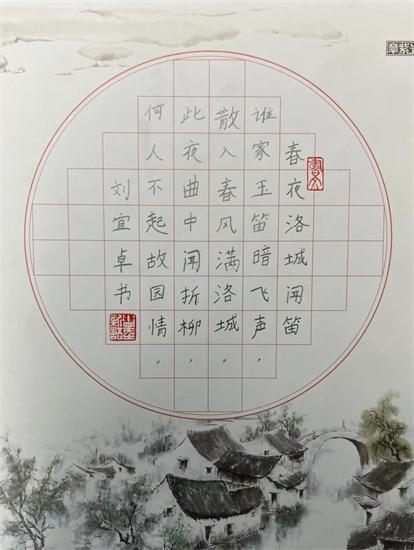 春夜洛城闻笛
谁家玉笛暗飞声，
散入春风满洛城。
此夜曲中闻折柳，
何人不起故园情。
刘宜卓书